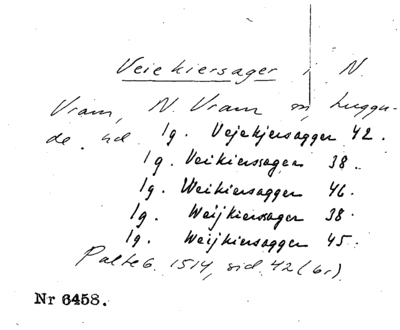 Veiekiersager i N.
Vram, N. Vram sn, Luggu-
de hd 1g. Vejekjersagger 42.
1g. Veikiersagen 38.
1g. Weikiersaggen 46.
1g. Weijkiersager 38.
1g. Weijkiersaggen 45.
Paltebo 1514, sid. 42 (br).
Nr 6458.